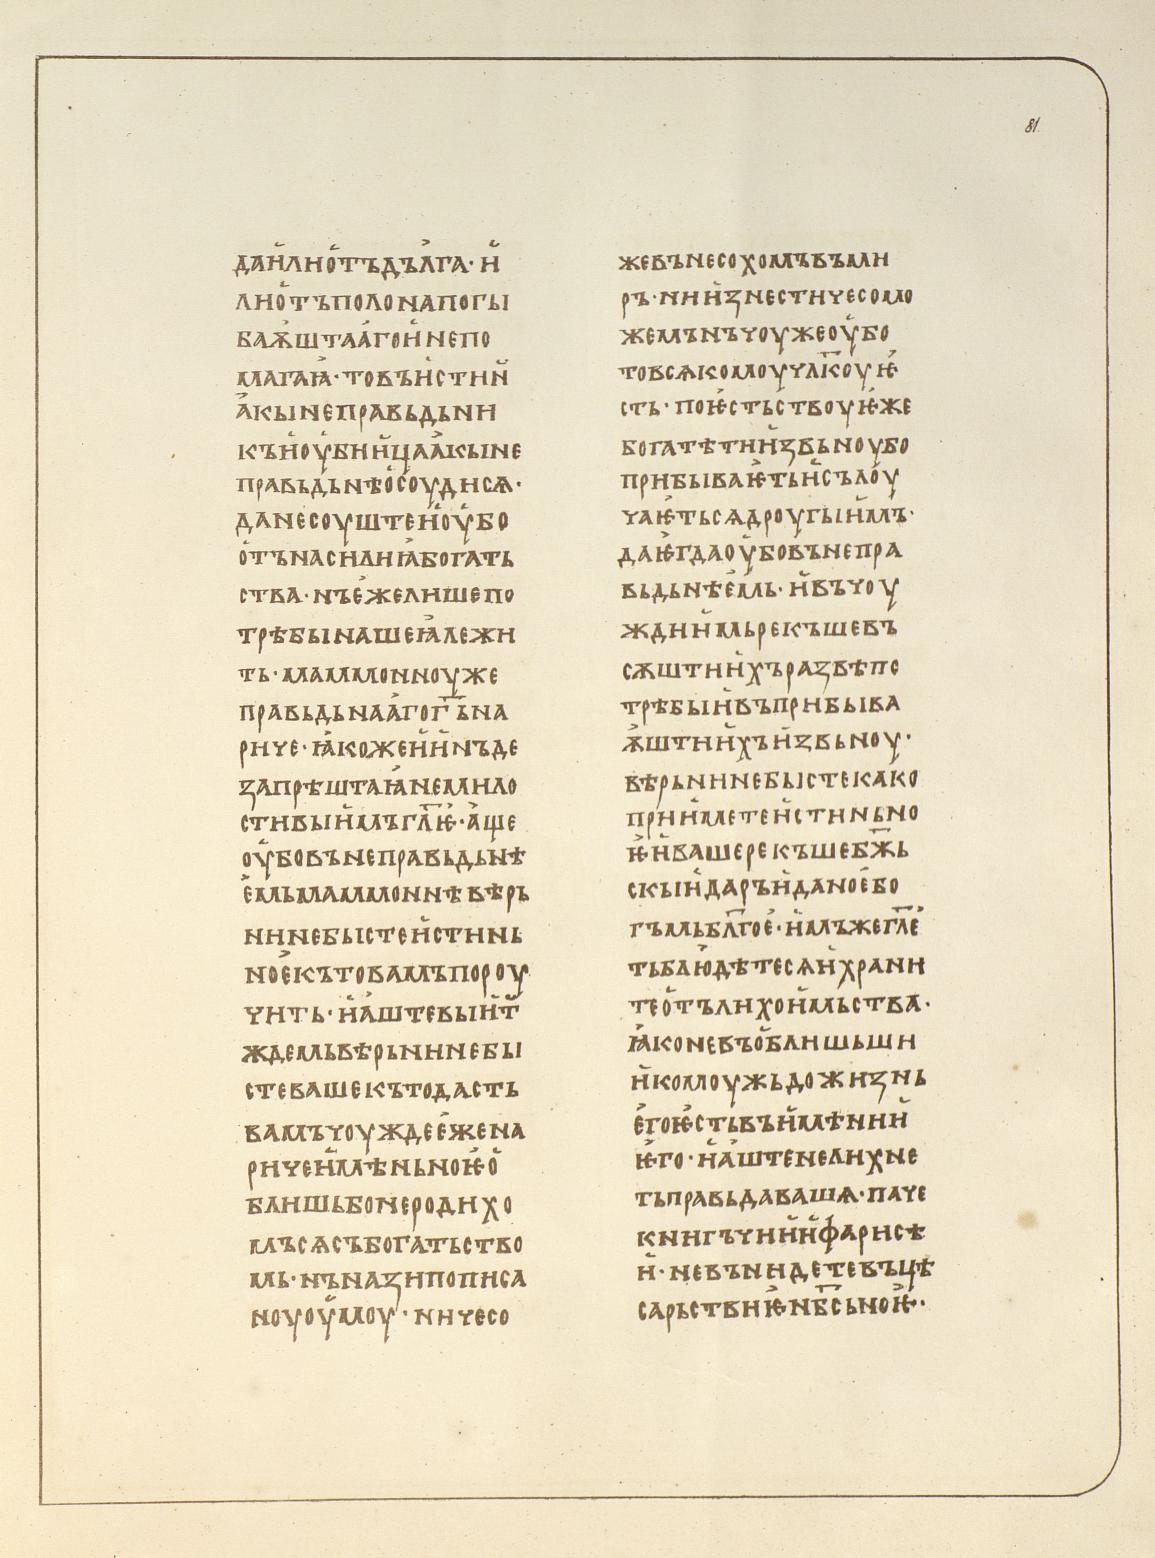 81.
даи҆лио҆тъдъл҆га· и҆
лио҆тъполонапогы
ваѭ҆штаа҆гои҆непо
магаꙗ҆· товъи҆стии҆
а҆кынеправьдьни
къи҆оу҆бии҆цаа҆кыне
правьдьнѣо҆соудисѧ·
данесоуштеи҆оу҆бо
о҆тънасилиꙗ҆богать
ства· нъе҆желишепо
трѣбынашеꙗ҆лежи
ть· маммонноуже
правьдьнаа҆гог҃ъна
риче· ꙗ҆кожеи҆и҆нъде
ꙁапрѣштаꙗ҆немило
стивыи҆мъгл҃ѥ· а҆ще
оу҆бовънеправьдьнѣ
е҆мьмамоннѣвѣрь
нинебыстеи҆стинь
ное҆къговамъпороу
чить· и҆а҆штевыи҆т҃
ждемьвѣрьнинебы
стевашекътодасть
вамъчоуждее҆жена
ричеи҆мѣньноѥ҆о҆
блишьбонеродихо
мъсѧсъбогатьство
мь· нънаꙁипописа
ноуоу҆моу· ничесо
жевънесохомъвъми
ръ· нии҆ꙁнестичесомо
жемънъчоужеоу҆бо
товсѧкомоучл҃коуѥ҆
сть· поѥ҆стьствоуѥ҆же
богатѣтии҆ꙁвьноубо
прибываѥ҆тьи҆сълоу
чаѥ҆тьсѧдроугыи҆мъ·
даѥ҆гдаоу҆бовънепра
вьдьнѣе҆мь· и҆въчоу
ждии҆мьрекъшевъ
сѫштии҆хъраꙁвѣпо
трѣбыи҆въприбыва
ѭ҆штии҆хъи҆ꙁвьноу·
вѣрьнинебыстекако
прии҆метеи҆стиньно
ѥ҆и҆вашерекъшебж҃ь
скыи҆даръи҆даное҆бо
гъмьбл҃гое҆· и҆мъжегл҃е҆
тьблюдѣтесѧи҆храни
тео҆тълихои҆мьства·
ꙗ҆коневъо҆блишьши
и҆комоужьдожиꙁнь
е҆гоѥ҆стьвъи҆мѣнии҆
ѥ҆го· и҆а҆штенелихне
тьправьдавашѧ· паче
книгъчии҆и҆фарисѣ
и҆· невънидетевъцѣ
сарьствиѥ҆нб҃сьноѥ҆·